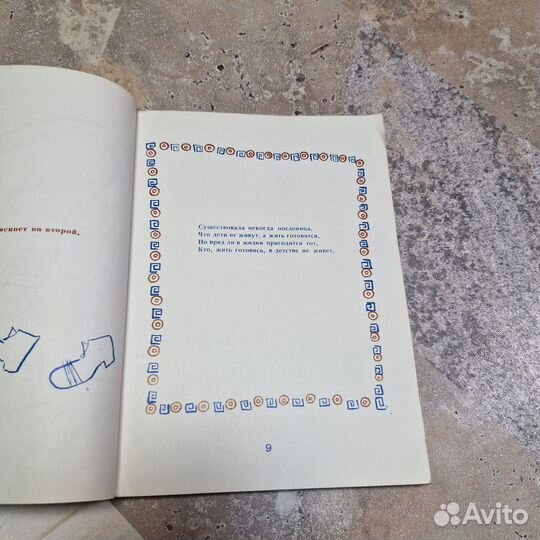 на второй.
Существовала некогда пословица,
Что дети не живут, а жить готовятся,
Но вряд ли в жизни пригодится тот,
Кто, жить готовясь, в детстве не живет.
9
Avito